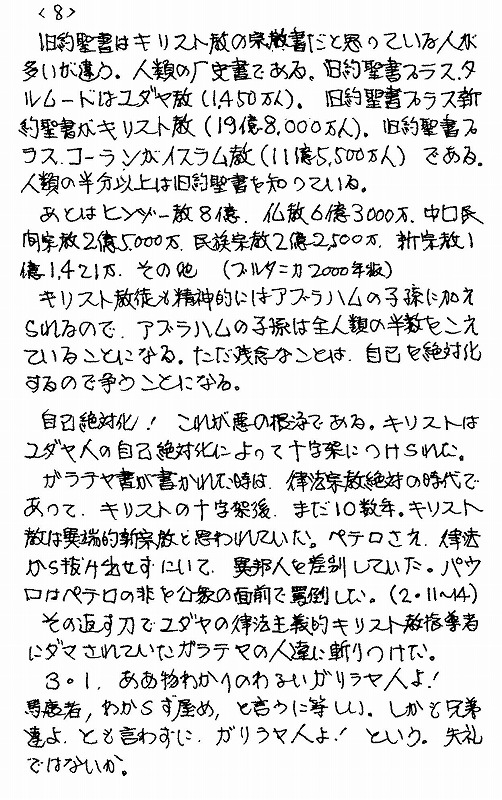 <8>
旧約聖書はキリスト教の宗教書だと思っている人が
多いが違う。人類の歴史書である。旧約聖書プラス.タ
ルムードはユダヤ教(1,450万人)。旧約聖書プラス新
約聖書がキリスト教(19億8,000万人)。旧約聖書プ
ラス.コーランがイスラム教(11億5,500万人)である。
人類の半分以上は旧約聖書を知っている。
あとはヒンズー教8億.仏教6億3000万.中国民
間宗教2億5,000万.民族宗教2億2,500万.新宗教1
億1,421万.その他 (ブルタニカ2000年版)
キリスト教徒も精神的にはアブラハムの子孫に加え
られるので.アブラハムの子孫は全人類の半数をこえ
ていることになる。ただ残念なことは.自己を絶対化
するので争うことになる。
自己絶対化! これが悪の根源である。キリストは
ユダヤ人の自己絶対化によって十字架につけられた。
ガラテヤ書が書かれた時は.律法宗教絶対の時代で
あって.キリストの十字架後.まだ10数年。キリスト
教は異端的新宗教と思われていた。ペテロさえ.律法
から抜け出せずにいて.異邦人を差別していた。パウ
ロはペテロの非を公衆の面前で罵倒した。(2・11~14)
その返す刀でユダヤの律法主義的キリスト教指導者
にダマされていたガラテヤの人達に斬りつけた。
3・1.ああ物わかりのわるいガリラヤ人よ!
馬鹿者,わからず屋め,と言うに等しい。しかも兄弟
達よ.とも言わずに.ガリラヤ人よ!という。失礼
ではないか。